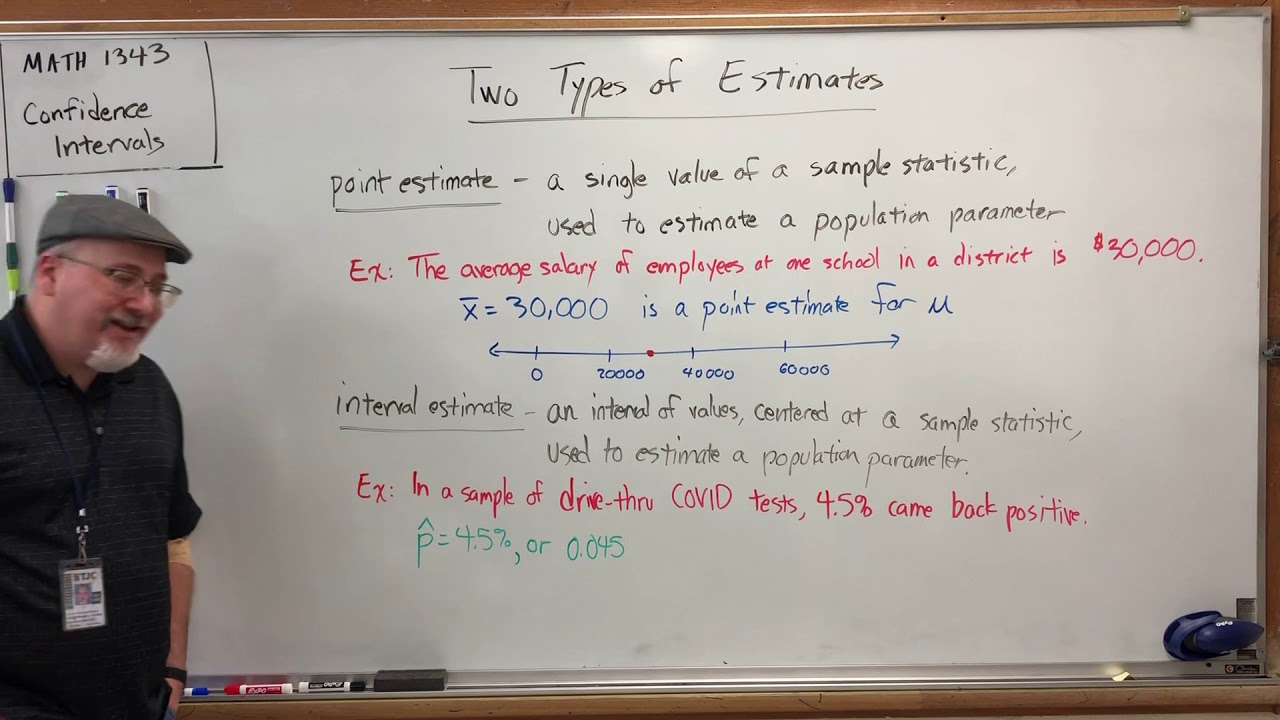 MATH 1343
Confidence
Intervals
Two Types of Estimates
point estimate - a single value of a sample statistic,
used to estimate a population parameter
Ex: The average salary of employees at one school in a district is $30,000.
x̄ = 30,000 is a point estimate for μ
0 20000 40000 60000
interval estimate - an interval of values, centered at a sample statistic,
used to estimate a population parameter.
Ex: In a sample of drive-thru COVID tests, 4.5% came back positive.
p̂ = 4.5%, or 0.045
STJC
EXPO
EXPO